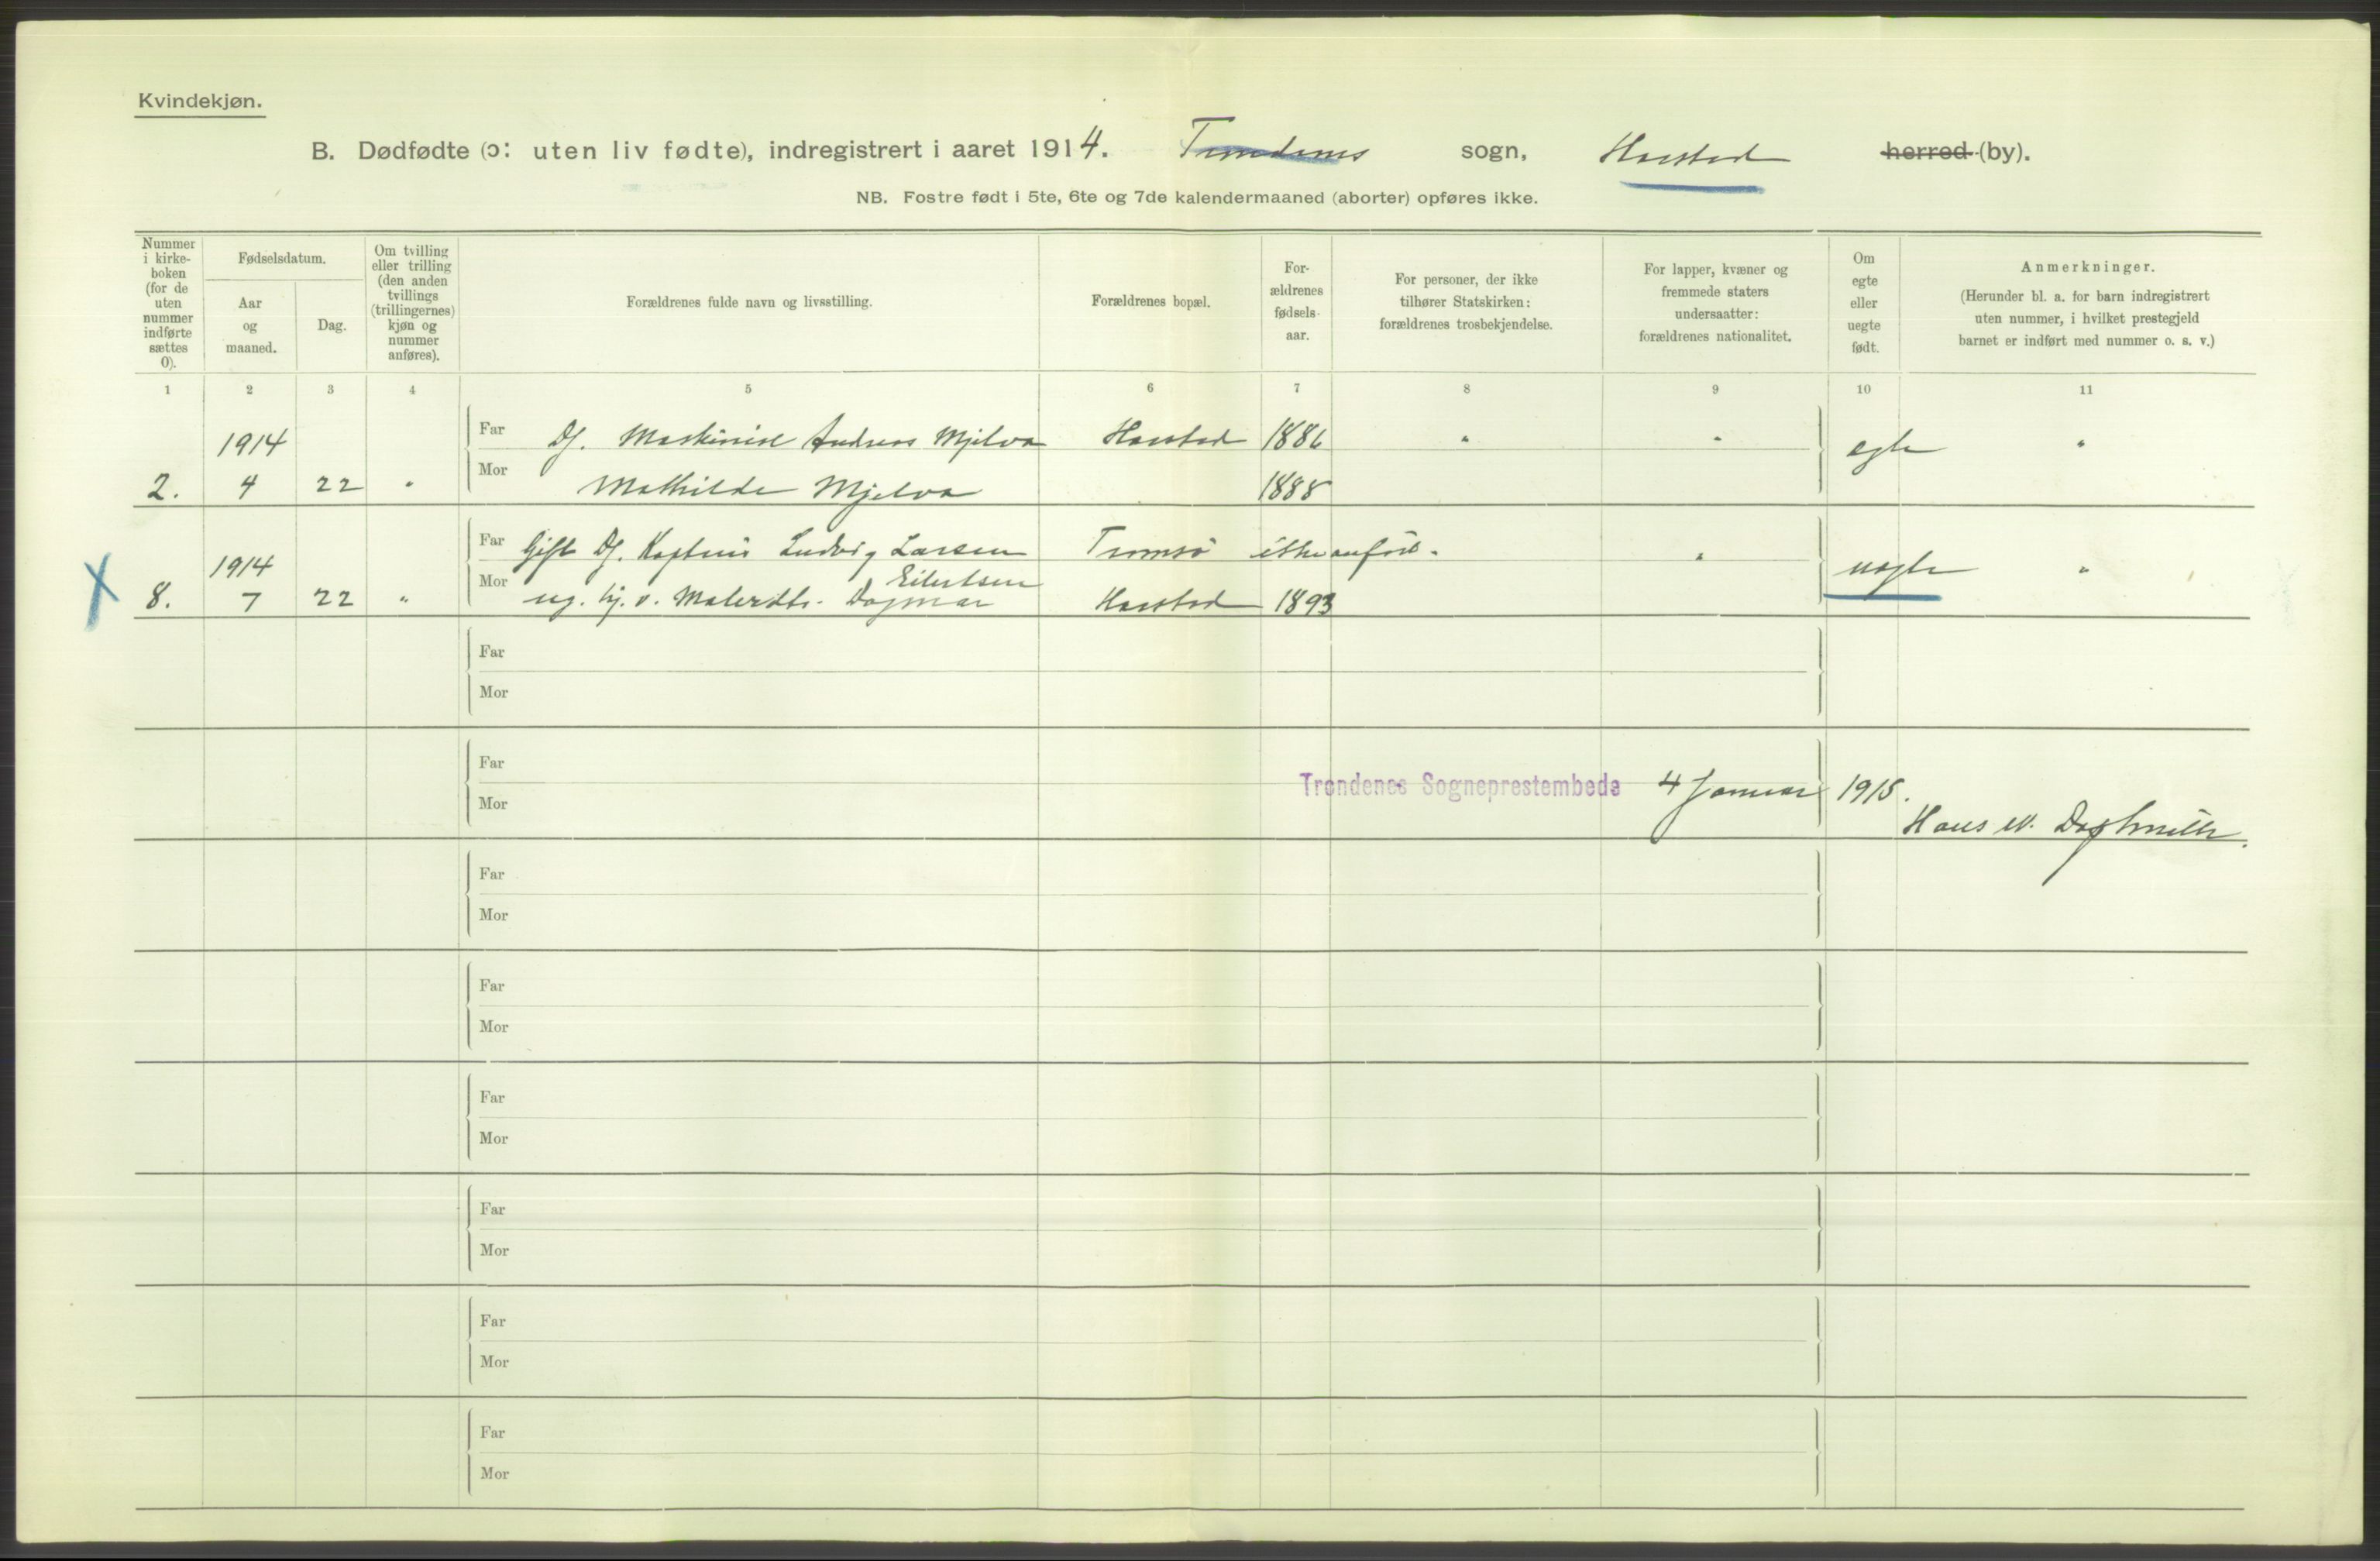 Kvindekjøn.
B. Dødfødte (ɔ: uten liv fødte), indregistrert i aaret 1914. Trondenes sogn, Harstad herred (by).
NB. Fostre født i 5te, 6te og 7de kalendermaaned (aborter) opføres ikke.
Nummer i kirke-boken (for de uten nummer indførte sættes 0).
Fødselsdatum.
Aar og maaned.
Dag.
Om tvilling eller trilling (den anden tvillings (trillingernes) kjøn og nummer anføres).
Forældrenes fulde navn og livsstilling.
Forældrenes bopæl.
For-ældrenes fødsels-aar.
For personer, der ikke tilhører Statskirken: forældrenes trosbekjendelse.
For lapper, kvæner og fremmede staters undersaatter: forældrenes nationalitet.
Om egte eller uegte født.
Anmerkninger.
(Herunder bl. a. for barn indregistrert uten nummer, i hvilket prestegjeld barnet er indført med nummer o. s. v.)
1 2 3 4 5 6 7 8 9 10 11
1914 Far Df. Maskinist Andreas Mjelva Harstad 1886 " " egte "
2. 4 22 " Mor Mathilde Mjelva 1888
1914 Far Gift Df. Kaptein Ludvig Larsen Tromsø ikke anført. " uegte "
Eilertsen
8. 7 22 " Mor ug. hj. v. Malerdtr. Dagmar Harstad 1893
Far
Mor
Far
Trondenes Sogneprestembede 4 Januar 1915.
Mor
Hans
Far
Mor
Far
Mor
Far
Mor
Far
Mor
Far
Mor
Far
Mor